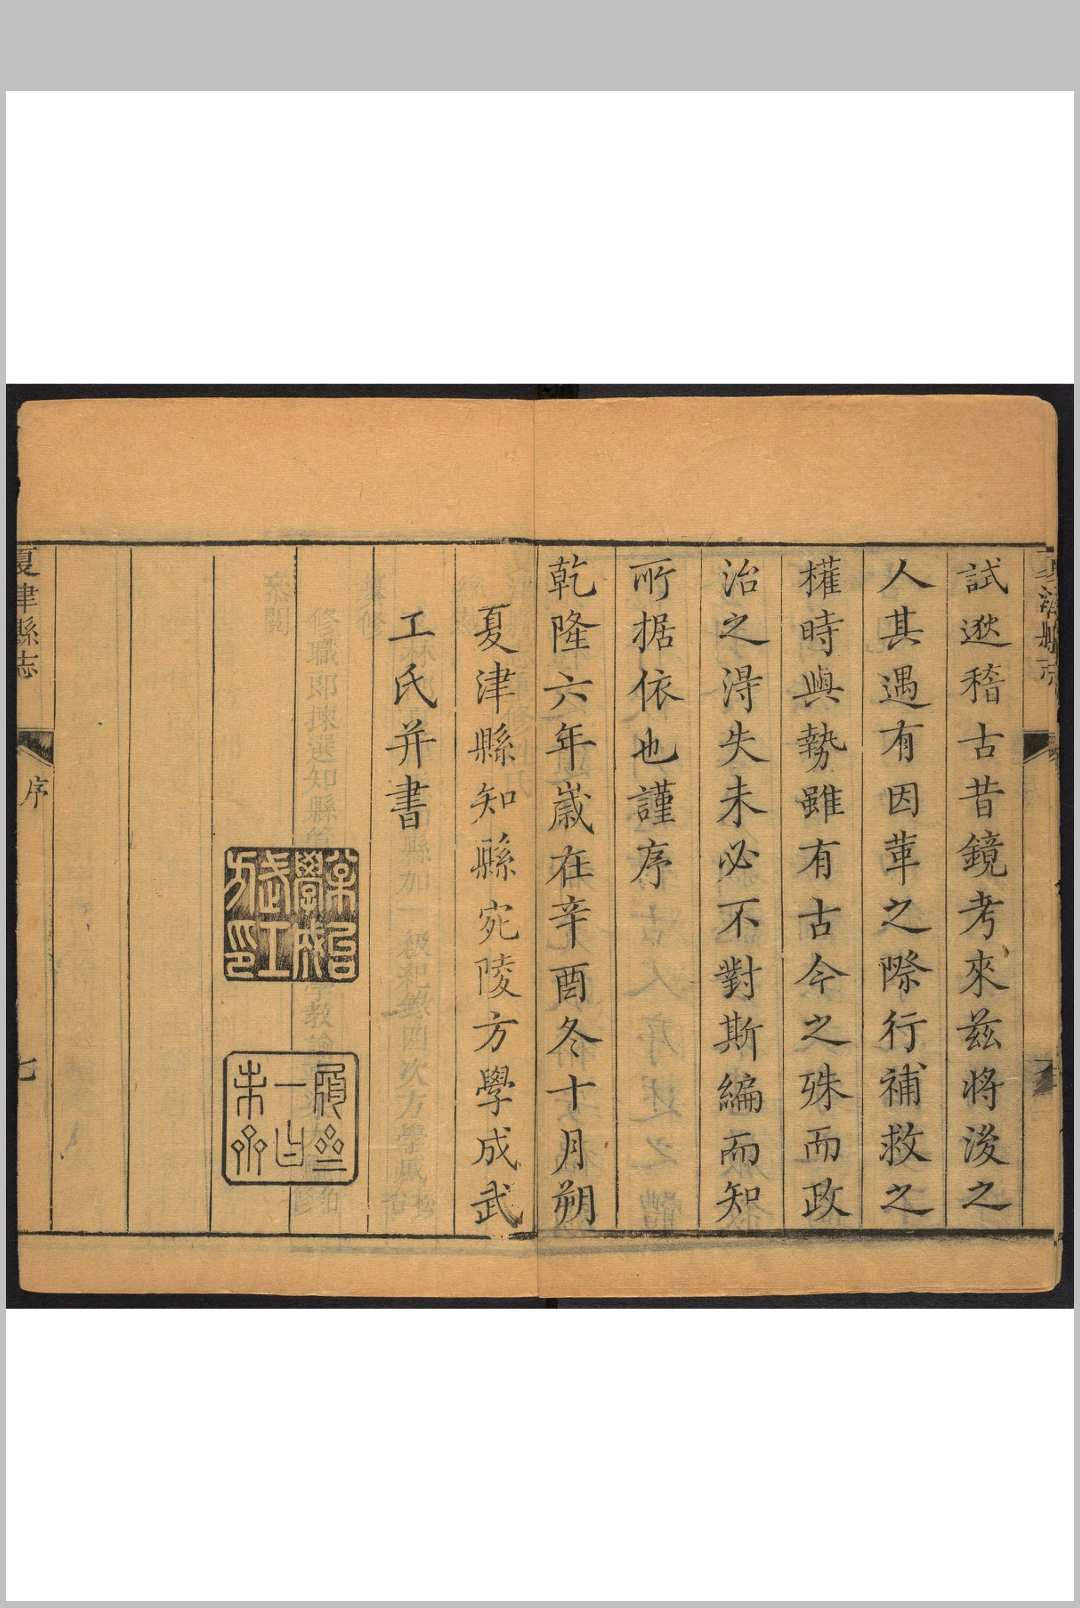 試逖稽古昔鏡考來茲將後之
人其遇有因革之際行補救之
權時與勢雖有古今之殊而政
治之得失未必不對斯編而知
所据依也謹序
乾隆六年歲在辛酉冬十月朔
夏津縣知縣宛陵方學成武
工氏并書
夏津縣志
序
七